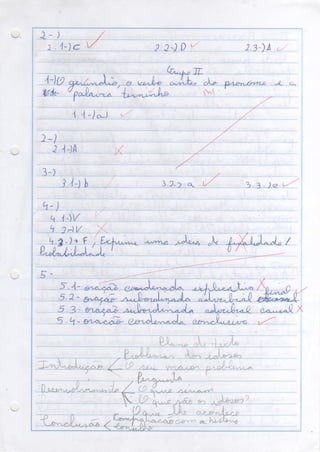 2-)
2.1-)C 2.2-)D 2.3-)A
Grupo II
1-)O gerúndio, o verbo antes do pronome e a
palavra terminho
1.1-)a)
2-)
2.1-)A
3-)
3.1-)b 3.2-) a 3.3-)e
4-)
4.1-)V
4.2-)V
4.3-) F, Exprime uma ideia de finalidade/
Probabilidade
5-
5.1- oração coordenada explicativa
5.2- oração subordinada adverbial final
5.3- oração subordinada adverbial causal
5.4- oração coordenada conclusiva
Plano de texto
Problemas dos idosos
Introdução O seu maior problema
Pergunta
Desenvolvimento O que seriam
O que são os idosos?
O que lhe acontece
Conclusão Comparação com a história